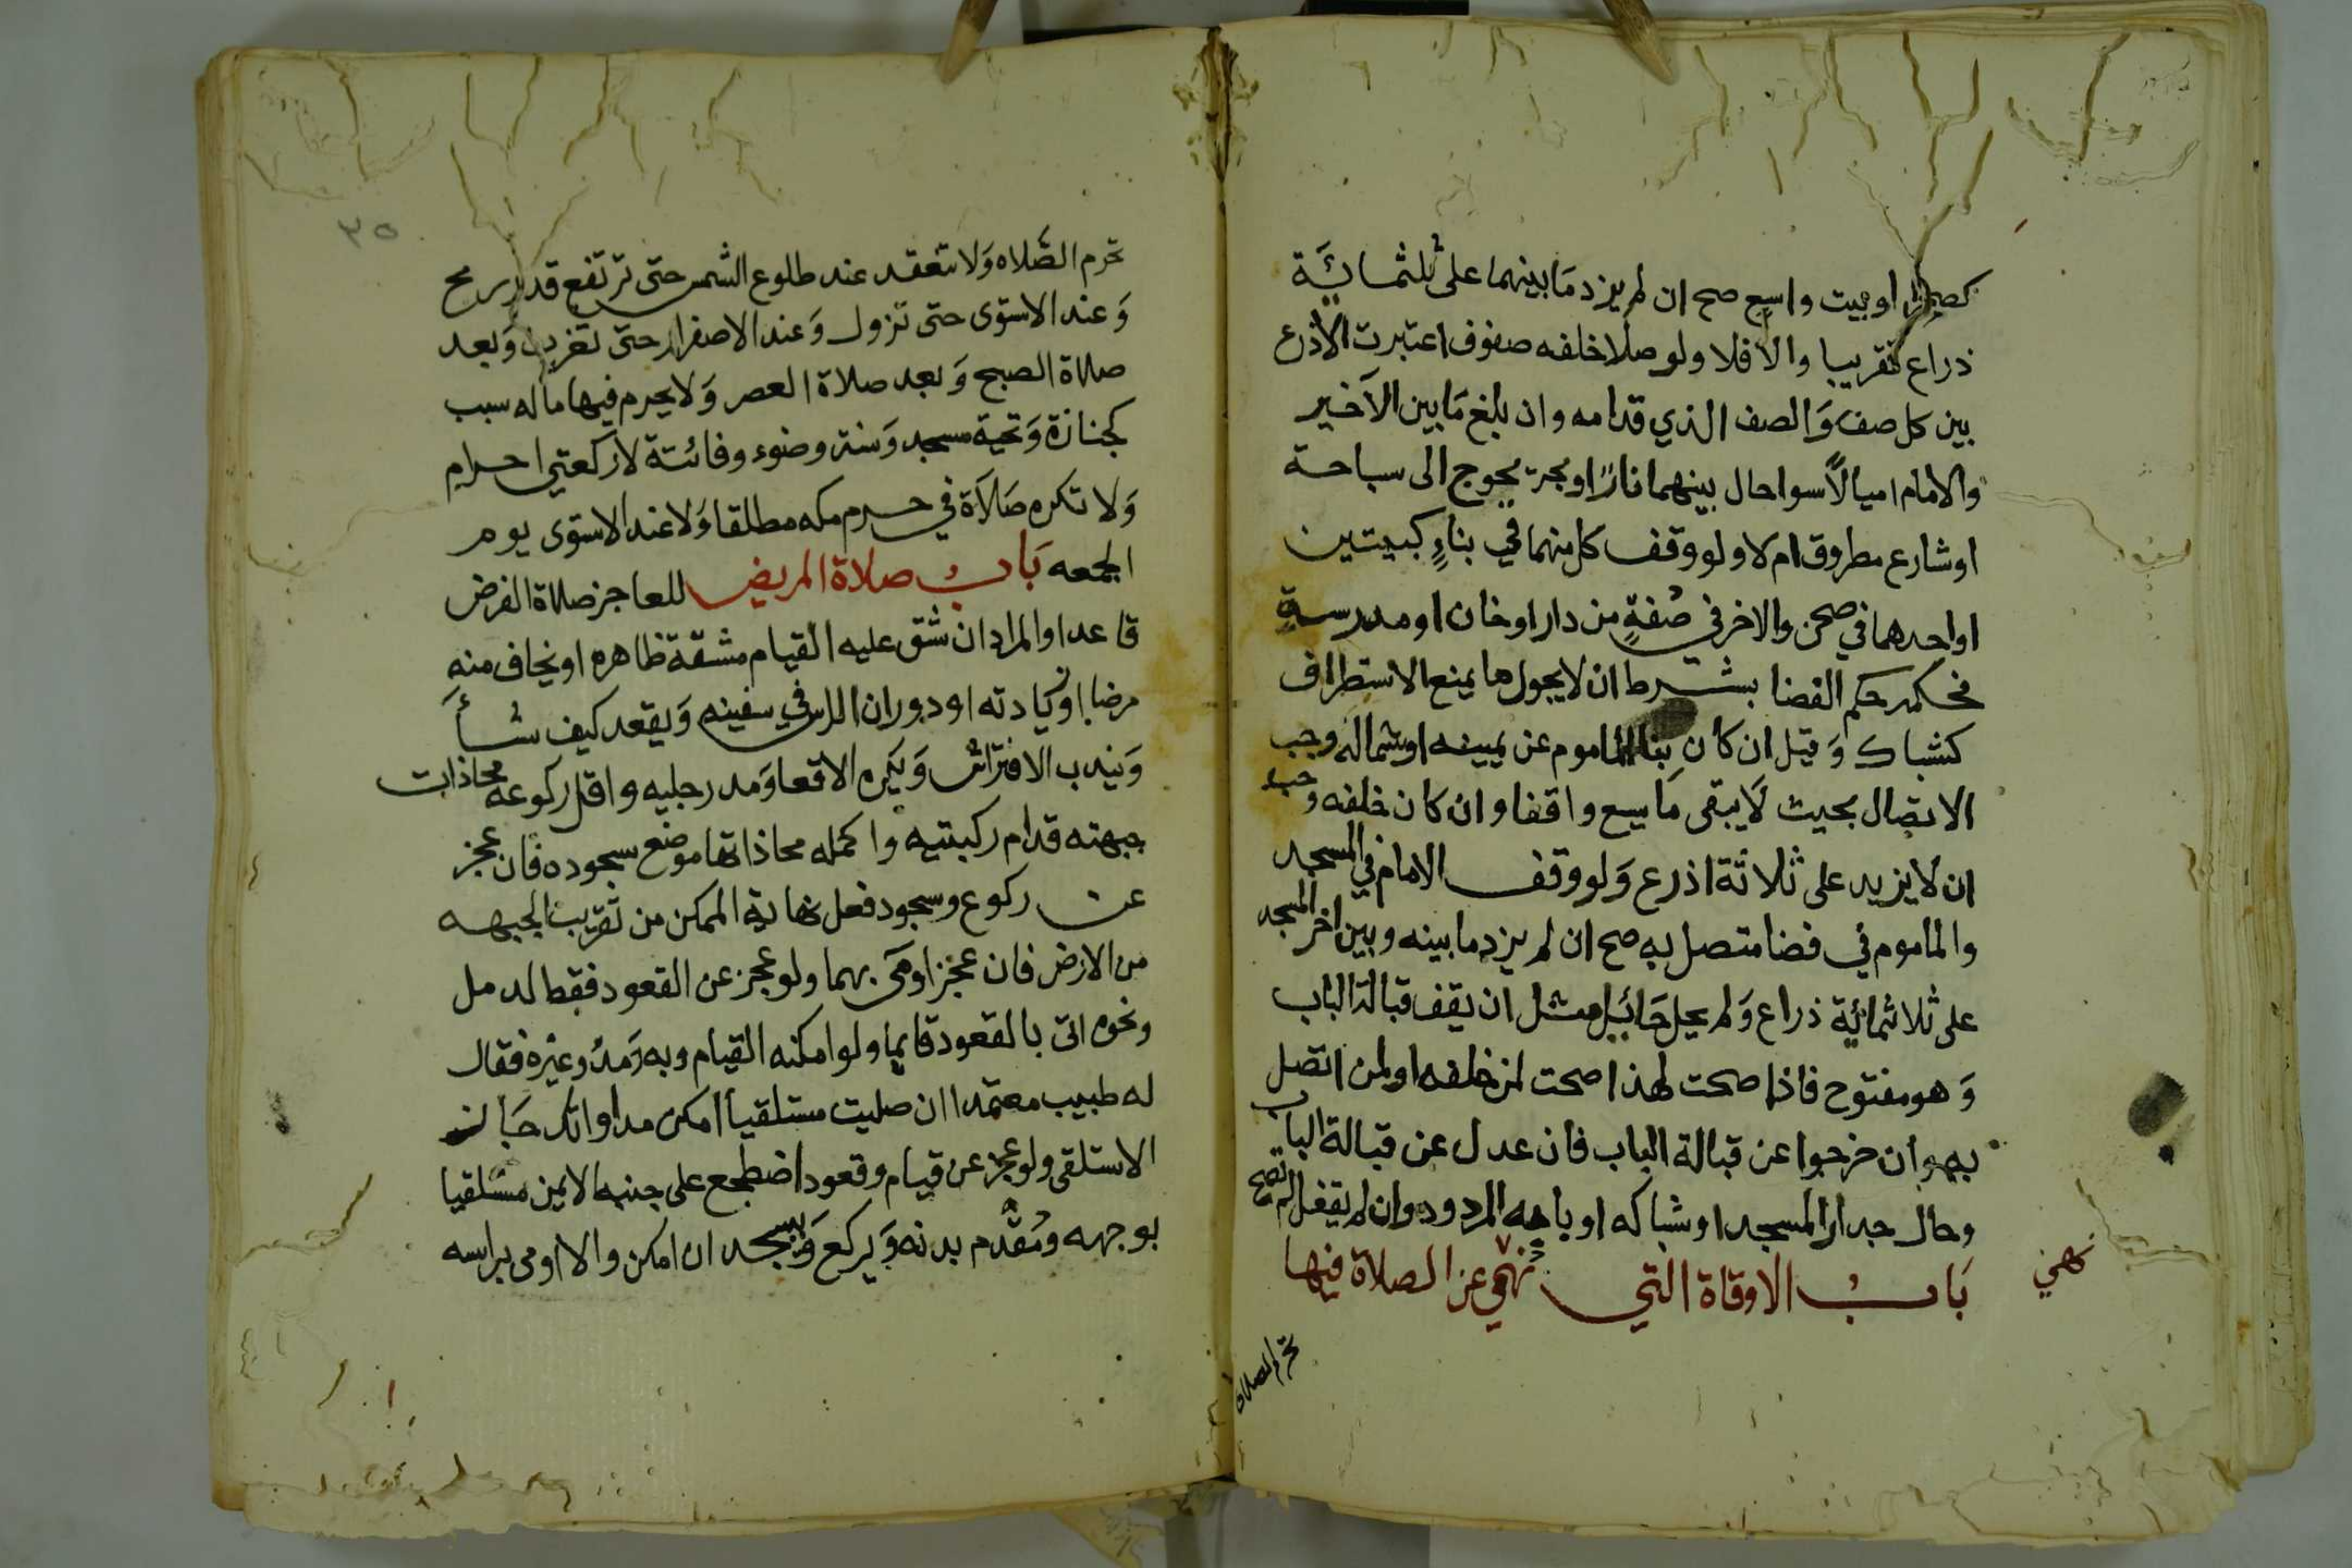 كصحرا او بيت واسع صح ان لم يزد مَا بينهما على ثلثمائَة
ذراع تقريبا والا فلا ولو صلا خلفه صفوف اعتبرت الاذرع
بين كل صف وَالصف الذي قدامه وان بلغ مَا بين الاخير
والامام اميالاً سوا حال بينهما نارًا او بحر يحوج الى سباحة
او شارع مطروق ام لا ولو وقف كل منهما في بناءٍ كبيتين
او احدهما في صحن والاخر في صُفةٍ من دار او خان او مدرسةٍ
فحكمه حكم الفضا بشرط ان لا يحول ما يمنع الاستطراق
كشباك وَقيل ان كان بنا الماموم عن يمينه او شماله وجب
الاتصال بحيث لَا يبقى مَا يسع واقفا وان كان خلفه وجب
ان لا يزيد على ثلاثة اذرع وَلو وقف الامام في المسجد
والماموم في فضا متصل به صح ان لم يزد ما بينه وبين اخر المسجد
على ثلاثمائة ذراع وَلم يحل حَائيل مثل ان يقف قبالة الباب
وَهو مفتوح فاذا صحت لهذا صحت لمن خلفه او لمن اتصل
به وان خرجوا عن قبالة الباب فان عدل عن قبالة الباب
وحال جدار المسجد او شباكه او بابه المردود وان لم يقفل لم تصح
بَابُ الاوقاة التي نهي عن الصلاة فيها
نهي
تحرم الصلاه
٣٥
تحرم الصَّلاه وَلا تنعقد عند طلوع الشمس حتى ترتفع قدر رمح
وَعند الاستوى حتى تزول وَعند الاصفرار حتى تغرب وَبعد
صلاة الصبح وَبعد صلاة العصر وَلا يحرم فيها ما له سبب
كجنازة وَتحية مسجد وَسنة وضوء وفائتة لا ركعتي احرام
وَلا تكره صَلاة في حرم مكه مطلقا وَلا عند الاستوى يوم
الجمعه بَابُ صلاة المريض للعاجز صلاة الفرض
قاعدا والمراد ان شق عليه القيام مشقة ظاهره او يخاف منه
مرضا او زيادته او دوران الراس في سفينه وَيقعد كيف شَأَ
وَيندب الافتراش وَيكره الاقعا وَمد رجليه واقل ركوعه محاذات
جبهته قدام ركبتيه واكمله محاذاتها موضع سجوده فان عجز
عن ركوع وسجود فعل نهاية الممكن من تقريب الجبهه
من الارض فان عجز اومى بهما ولو عجز عن القعود فقط لدمل
ونحوه اتى بالقعود قايما ولو امكنه القيام وبه رَمدُ وغيره فقال
له طبيب معتمد ان صليت مستلقيا امكن مداواتك جَاز
الاستلقى ولو عجز عن قيام وقعود اضطجع على جنبه الايمن مستلقيا
بوجهه ومُقدَّم بدنه وَيركع وَيسجد ان امكن والا اومى براسه